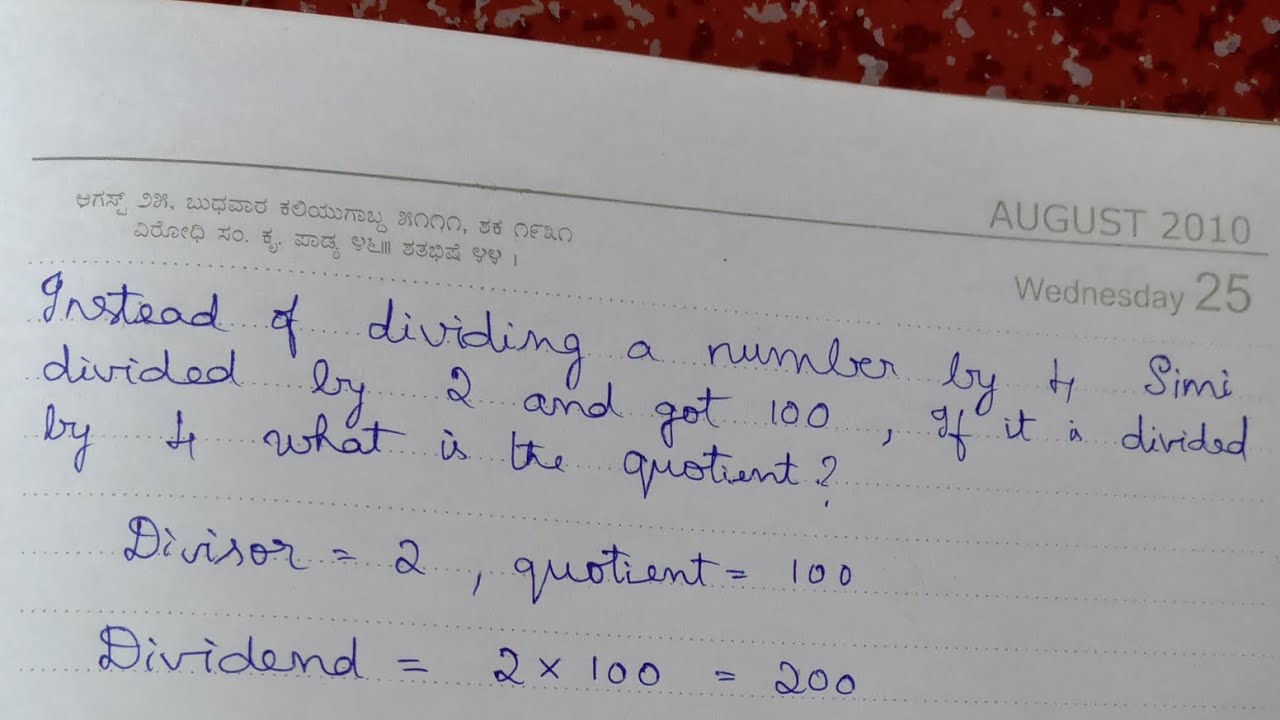 ಆಗಸ್ಟ್ ೨೫, ಬುಧವಾರ ಕಲಿಯುಗಾಬ್ದ ೫೧೧೧, ಶಕ ೧೯೩೧
ವಿರೋಧಿ ಸಂ. ಕೃ. ಪಾಡ್ಯ ೪೬॥ ಶತಭಿಷೆ ೪೪ ।
AUGUST 2010
Wednesday 25
Instead of dividing a number by 4 Simi
divided by 2 and got 100 , If it is divided
by 4 what is the quotient?
Divisor = 2 , quotient = 100
Dividend = 2 × 100 = 200